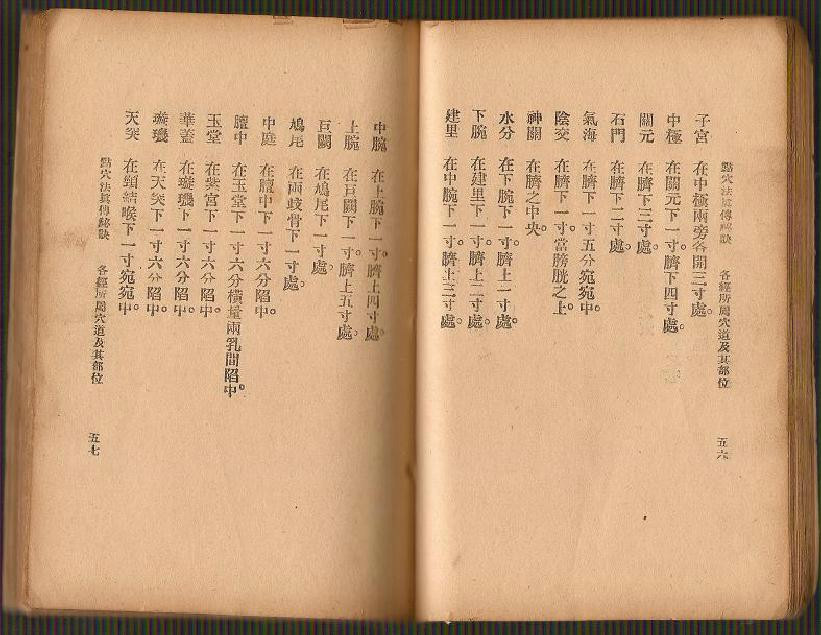 點穴法真傳秘訣 各經所屬穴道及其部位 五六
子宮 在中極兩旁各開三寸處。
中極 在關元下一寸。臍下四寸處。
關元 在臍下三寸處。
石門 在臍下二寸處。
氣海 在臍下一寸五分宛宛中。
陰交 在臍下一寸。當膀胱之上。
神闕 在臍之中央。
水分 在下脘下一寸。臍上一寸處。
下脘 在建里下一寸。臍上二寸處。
建里 在中脘下一寸。臍上三寸處。
中脘 在上脘下一寸。臍上四寸處。
上脘 在巨闕下一寸。臍上五寸處。
巨闕 在鳩尾下一寸處。
鳩尾 在兩歧骨下一寸處。
中庭 在膻中下一寸六分陷中。
膻中 在玉堂下一寸六分橫量兩乳間陷中。
玉堂 在紫宮下一寸六分陷中。
華蓋 在璇璣下一寸六分陷中。
璇璣 在天突下一寸六分陷中。
天突 在頸結喉下一寸宛宛中。
點穴法真傳秘訣 各經所屬穴道及其部位 五七